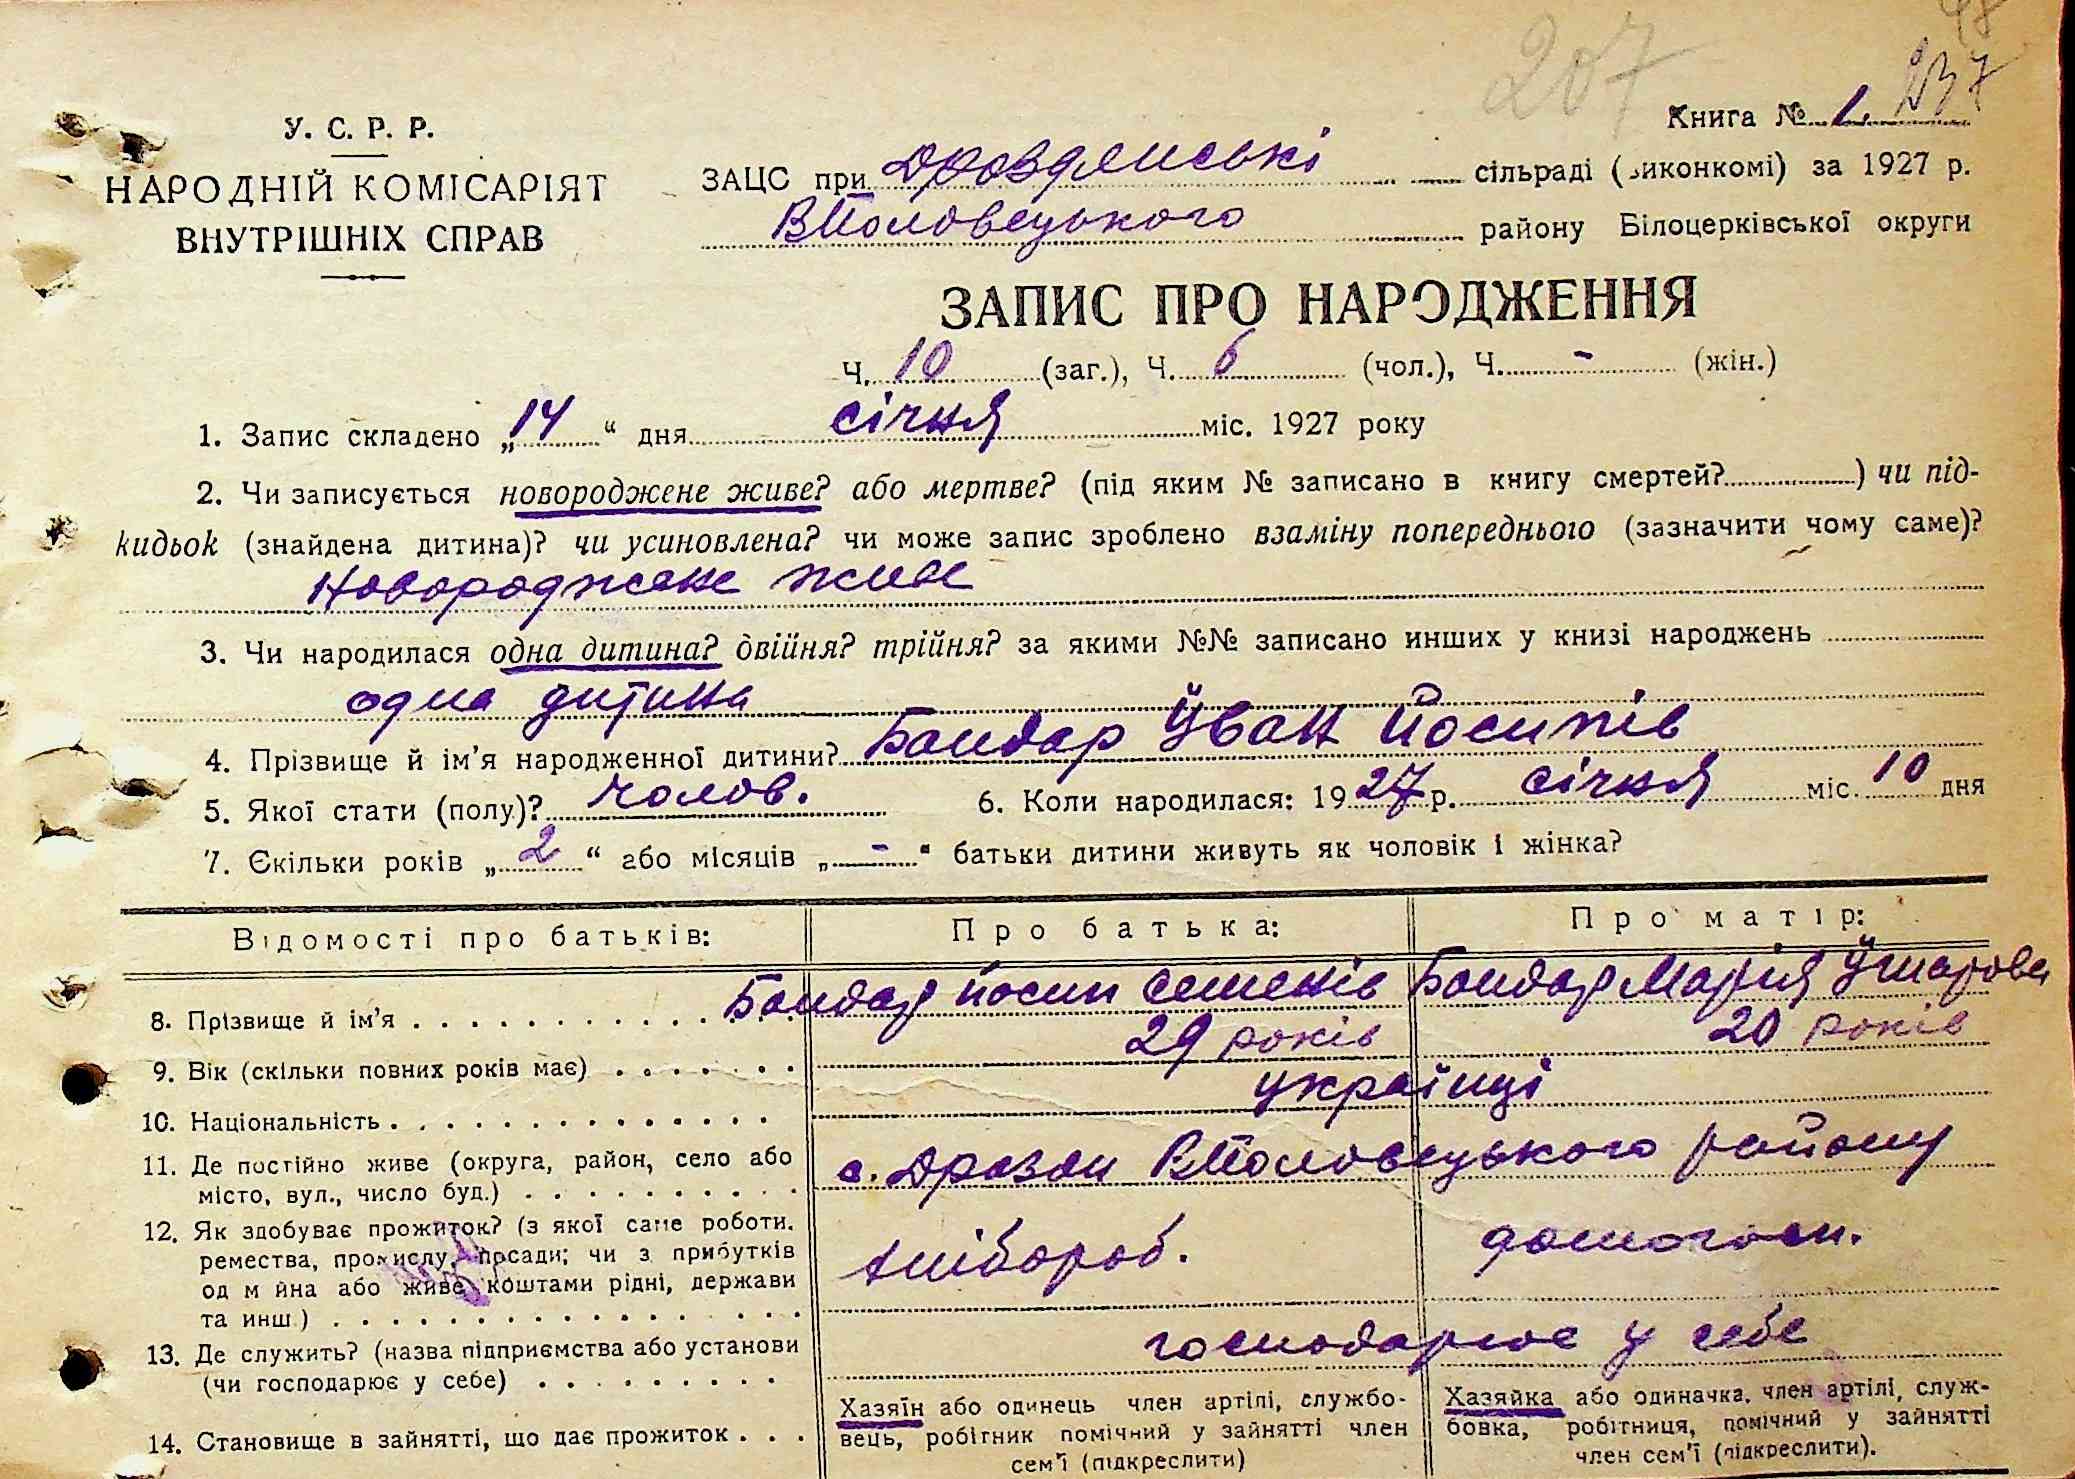 207
237
У. С. Р. Р.
НАРОДНІЙ КОМІСАРІЯТ
ВНУТРІШНІХ СПРАВ
Книга № 1.
ЗАЦС при Дроздянські сільраді (виконкомі) за 1927 р.
ВПоловецького району Білоцерківської округи
ЗАПИС ПРО НАРОДЖЕННЯ
Ч. 10 (заг.), Ч. 6 (чол.), Ч. - (жін.)
1. Запис складено „14“ дня січня міс. 1927 року
2. Чи записується новороджене живе? або мертве? (під яким № записано в книгу смертей?) чи під-
кидьок (знайдена дитина)? чи усиновлена? чи може запис зроблено взаміну попереднього (зазначити чому саме)?
Новороджене живе
3. Чи народилася одна дитина? двійня? трійня? за якими №№ записано инших у книзі народжень
одна дитина
4. Прізвище й ім'я народженної дитини? Бондар Іван Йосипів
5. Якої стати (полу)? чолов. 6. Коли народилася: 1927 р. січня міс. 10 дня
7. Скільки років „2“ або місяців „-“ батьки дитини живуть як чоловік і жінка?
Відомості про батьків: Про батька: Про матір:
8. Прізвище й ім'я . . . Бондар Йосип Семенів Бондар Марія
9. Вік (скільки повних років має) . . . 29 років 20 років
10. Національність . . . українці
11. Де постійно живе (округа, район, село або
місто, вул., число буд.) . . . с. Дрозди ВПоловецького району
12. Як здобуває прожиток? (з якої саме роботи.
ремества, промислу, посади; чи з прибутків
од майна або живе коштами рідні, держави
та инш.) . . . хлібороб. домогосп.
13. Де служить? (назва підприємства або установи
(чи господарює у себе) . . . господарює у себе
14. Становище в зайнятті, що дає прожиток . . .
Хазяїн або одинець член артілі, службо-
вець, робітник помічний у зайнятті член
сем'ї (підкреслити)
Хазяйка або одиначка, член артілі, служ-
бовка, робітниця, помічний у зайнятті
член сем'ї (підкреслити).